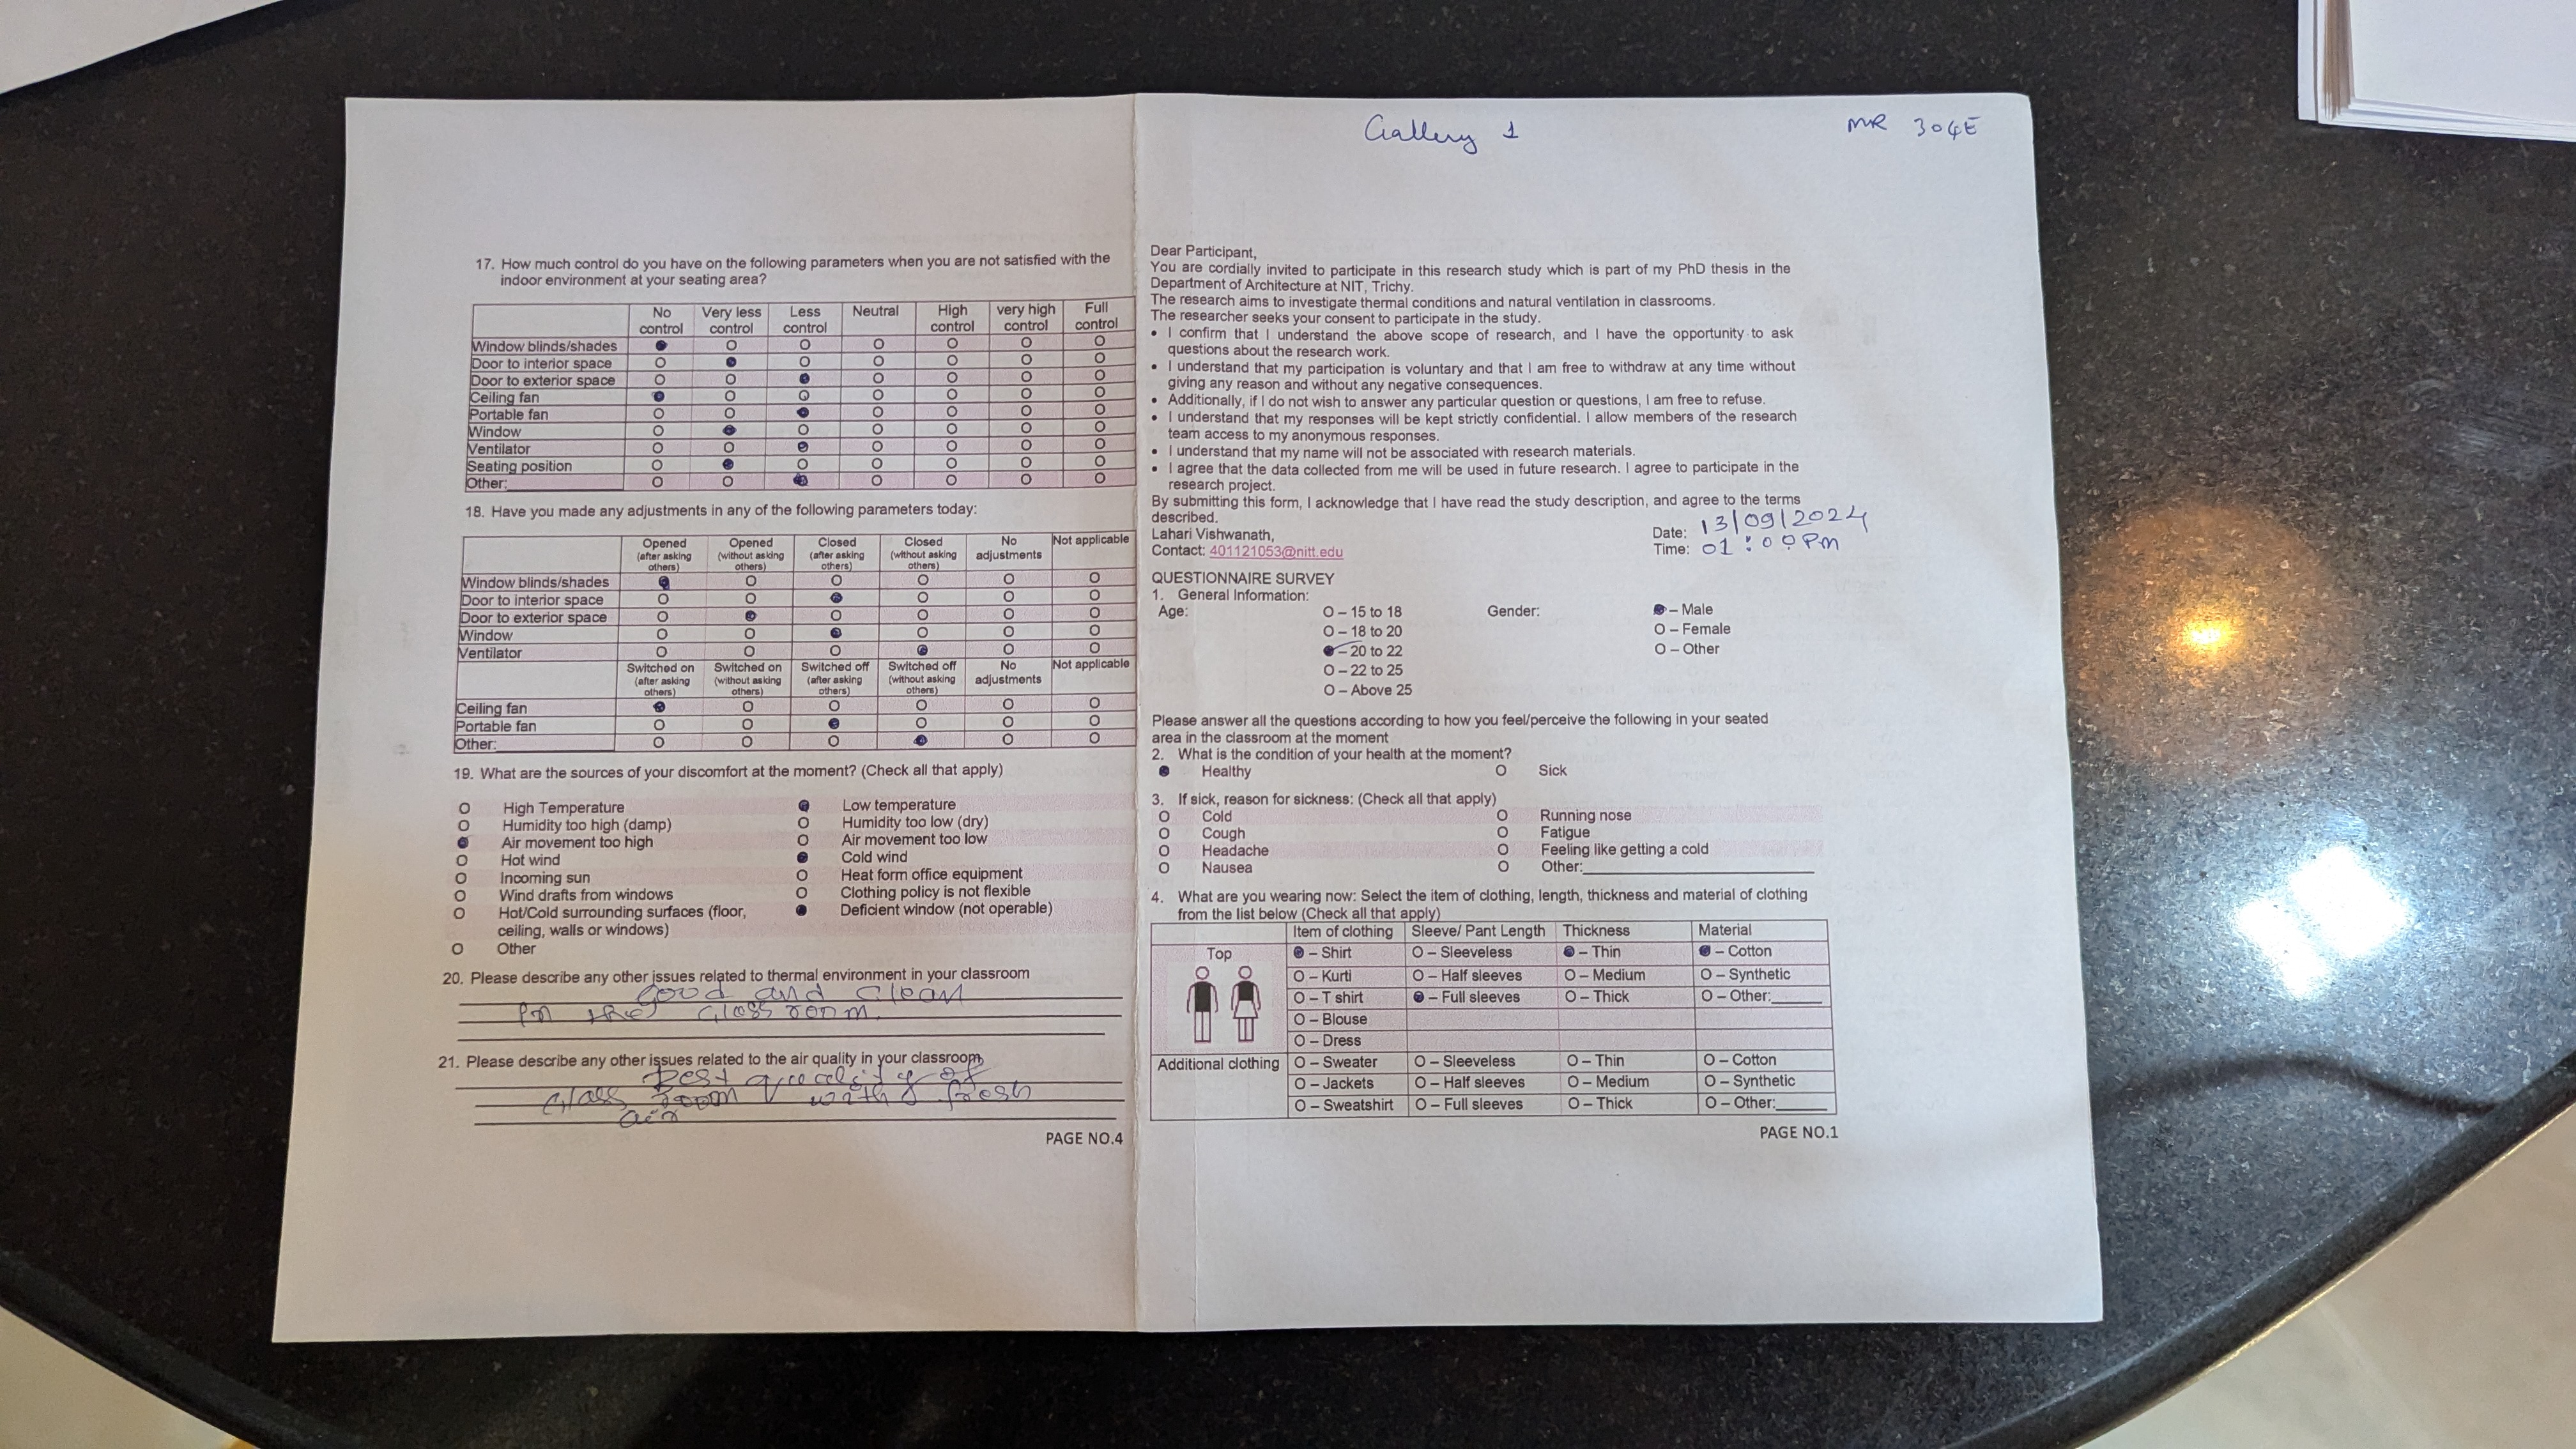 17. How much control do you have on the following parameters when you are not satisfied with the
indoor environment at your seating area?
No control Very less control Less control Neutral High control very high control Full control
Window blinds/shades
Door to interior space
Door to exterior space
Ceiling fan
Portable fan
Window
Ventilator
Seating position
Other:
18. Have you made any adjustments in any of the following parameters today:
Opened (after asking others) Opened (without asking others) Closed (after asking others) Closed (without asking others) No adjustments Not applicable
Window blinds/shades
Door to interior space
Door to exterior space
Window
Ventilator
Switched on (after asking others) Switched on (without asking others) Switched off (after asking others) Switched off (without asking others) No adjustments Not applicable
Ceiling fan
Portable fan
Other:
19. What are the sources of your discomfort at the moment? (Check all that apply)
High Temperature Low temperature
Humidity too high (damp) Humidity too low (dry)
Air movement too high Air movement too low
Hot wind Cold wind
Incoming sun Heat form office equipment
Wind drafts from windows Clothing policy is not flexible
Hot/Cold surrounding surfaces (floor, Deficient window (not operable)
ceiling, walls or windows)
Other
20. Please describe any other issues related to thermal environment in your classroom
Good and clean
in the class room.
21. Please describe any other issues related to the air quality in your classroom
Best quality of
class room with fresh
air
PAGE NO.4
Gallery 1 MR 304E
Dear Participant,
You are cordially invited to participate in this research study which is part of my PhD thesis in the
Department of Architecture at NIT, Trichy.
The research aims to investigate thermal conditions and natural ventilation in classrooms.
The researcher seeks your consent to participate in the study.
• I confirm that I understand the above scope of research, and I have the opportunity to ask
questions about the research work.
• I understand that my participation is voluntary and that I am free to withdraw at any time without
giving any reason and without any negative consequences.
• Additionally, if I do not wish to answer any particular question or questions, I am free to refuse.
• I understand that my responses will be kept strictly confidential. I allow members of the research
team access to my anonymous responses.
• I understand that my name will not be associated with research materials.
• I agree that the data collected from me will be used in future research. I agree to participate in the
research project.
By submitting this form, I acknowledge that I have read the study description, and agree to the terms
described.
Lahari Vishwanath, Date: 13/09/2024
Contact: 401121053@nitt.edu Time: 01:00 Pm
QUESTIONNAIRE SURVEY
1. General Information:
Age: O – 15 to 18 Gender: – Male
O – 18 to 20 O – Female
– 20 to 22 O – Other
O – 22 to 25
O – Above 25
Please answer all the questions according to how you feel/perceive the following in your seated
area in the classroom at the moment
2. What is the condition of your health at the moment?
Healthy O Sick
3. If sick, reason for sickness: (Check all that apply)
O Cold O Running nose
O Cough O Fatigue
O Headache O Feeling like getting a cold
O Nausea O Other:
4. What are you wearing now: Select the item of clothing, length, thickness and material of clothing
from the list below (Check all that apply)
Item of clothing Sleeve/ Pant Length Thickness Material
Top – Shirt O – Sleeveless – Thin – Cotton
O – Kurti O – Half sleeves O – Medium O – Synthetic
O – T shirt – Full sleeves O – Thick O – Other:
O – Blouse
O – Dress
Additional clothing O – Sweater O – Sleeveless O – Thin O – Cotton
O – Jackets O – Half sleeves O – Medium O – Synthetic
O – Sweatshirt O – Full sleeves O – Thick O – Other:
PAGE NO.1